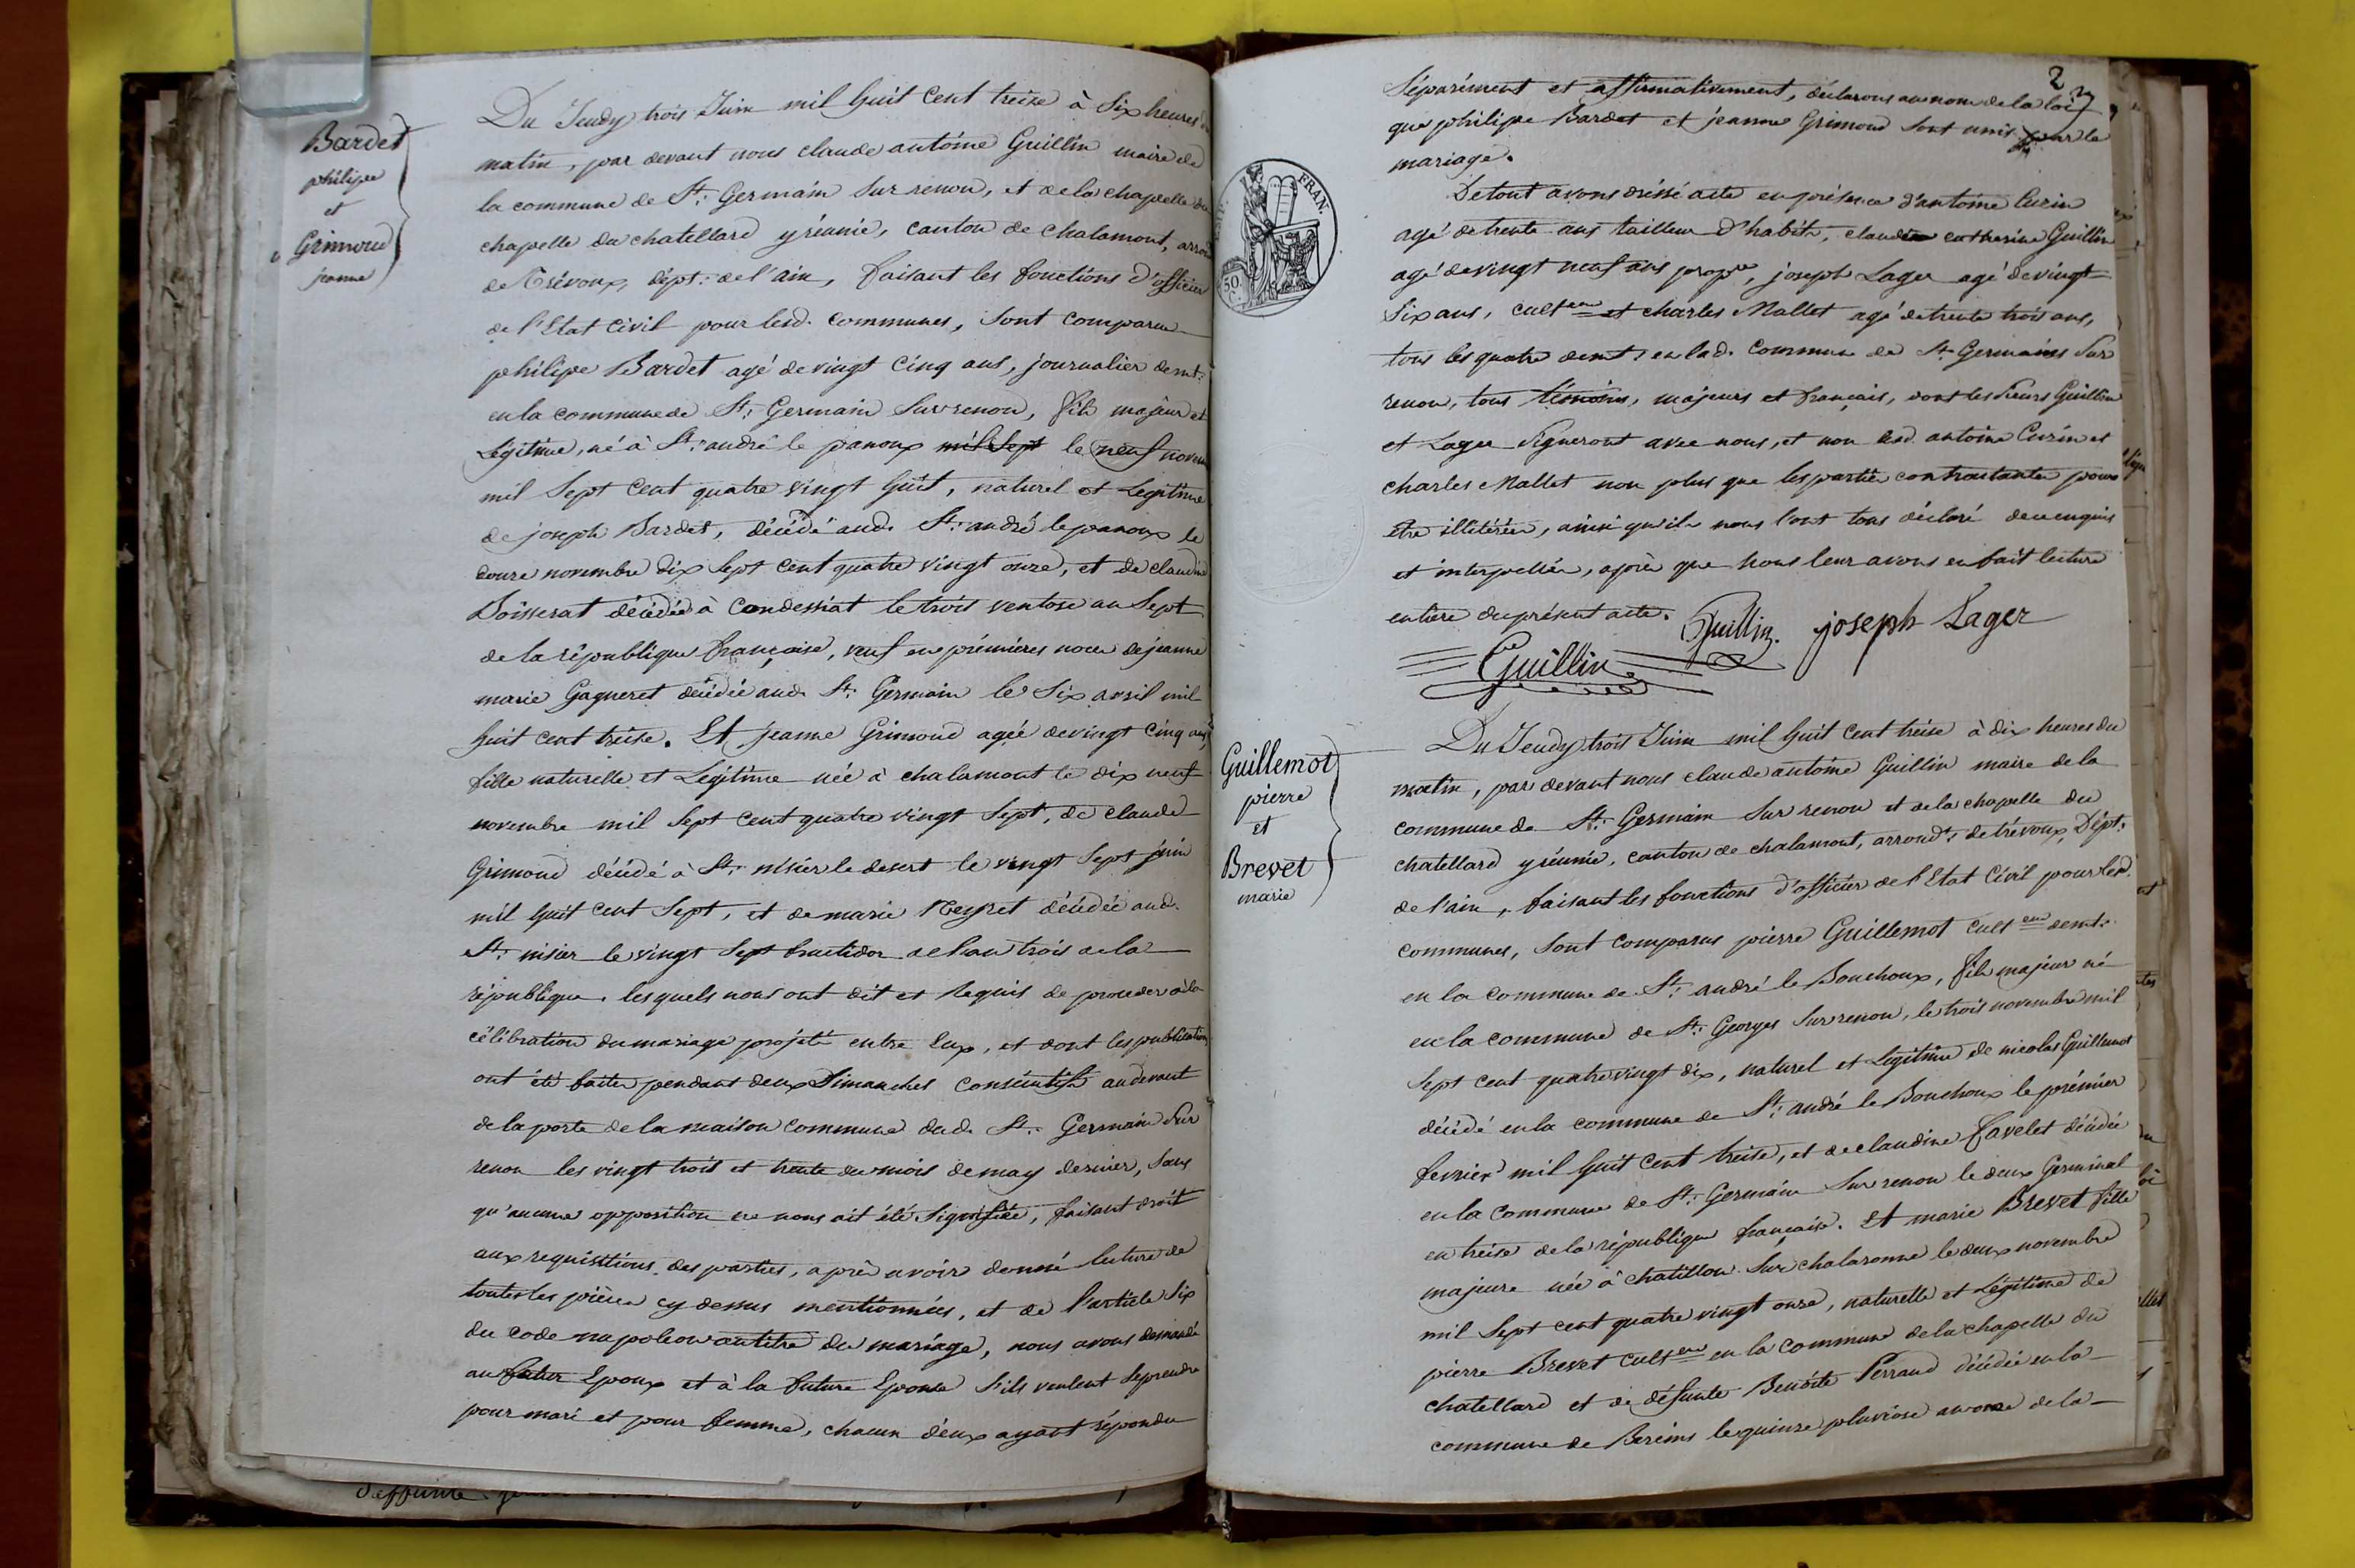 Bardet
philipe
et
Grimoud
jeanne
Du Jeudy trois Juin mil huit Cent treize à Six heures du
matin, par devant nous claude antoine Guillin maire de
la commune de St. Germain Sur renon, et de la chapelle du
chapelle du chatellard y réunie, canton de chalamont, arron
de Trévoux, dépt. de l'ain, faisant les fonctions d'officier
de l'Etat Civil pour lesd. communes, Sont comparu
philipe Bardet agé de vingt Cinq ans, journalier demt.
en la commune de St. Germain Sur renon, fils majeur et
Légitime, né à St. andré le panoux mil Sept le neuf novem
mil Sept Cent quatre vingt huit, naturel et Legitime
de joseph Bardet, décédé aud. St. andré le panoux le
douze novembre dix Sept Cent quatre vingt onze, et de claudine
Boisserat décédée à Condessiat le trois ventose an Sept
de la république française, veuf en premières noces de jeanne
marie Gagneret décédée aud. St. Germain le Six avril mil
huit cent treize. Et jeanne Grimoud agée de vingt Cinq ans,
fille naturelle et Légitime née à chalamont le dix neuf
novembre mil Sept Cent quatre vingt Sept, de claude
Grimoud décédé à St. nisier le desert le vingt Sept juin
mil huit cent Sept, et de marie Neyret décédée aud.
St. nisier le vingt Sept fructidor de l'an trois de la
république. lesquels nous ont dit et Requis de proceder à la
célébration du mariage projeté entre Eux, et dont les publications
ont été faites pendant deux Dimanches consécutifs au devant
de la porte de la maison commune dud. St. Germain Sur
renon les vingt trois et trente du mois de may dernier, Sans
qu'aucune opposition ne nous ait été Signifiée, faisant droit
aux requisitions des parties, après avoir donné lecture de
toutes les pièces cy dessus mentionnées, et de l'article Six
du code napoleon au titre du mariage, nous avons demandé
au futur Epoux et à la future Epouse S'ils veulent Se prendre
pour mari et pour femme, chacun d'eux ayant répondu
2
Séparément et affirmativement, déclarons au nom de la loi
que philipe Bardet et jeanne Grimoud Sont unis par le
mariage.
De tout avons dréssé acte en présence d'antoine Curin
agé de trente ans tailleur d'habits, claude catherine Guillin
agé de vingt neuf ans propre, joseph Lager agé de vingt
Six ans, culteur et charles Mallet agé de trente trois ans,
tous les quatre demt. en lad. Commune de St. Germain Sur
renon, tous témoins, majeurs et français, dont les Sieurs Guillin
et Lager Signeront avec nous, et non lesd. antoine Curin et
charles Mallet non plus que les parties contractantes pour
être illitérées, ainsi qu'ils nous l'ont tous déclaré de ce enquis
et interpellés, après que nous leur avons en fait lecture
entière du présent acte.
Guillin. joseph Lager
Guillin
Guillemot
pierre
et
Brevet
marie
Du Jeudy trois Juin mil huit Cent treise à dix heures du
matin, par devant nous claude antoine Guillin maire de la
commune de St. Germain Sur renon et de la chapelle du
chatellard y réunie, canton de chalamont, arrondt. de trévoux, Dépt.
de l'ain, faisant les fonctions d'officier de l'Etat Civil pour lesd.
communes, Sont comparus pierre Guillemot culteur demt.
en la commune de St. andré le Bouchoux, fils majeur né
en la commune de St. Georges Sur renon, le trois novembre mil
Sept cent quatre vingt dix, naturel et Légitime de nicolas Guillemot
décédé en la commune de St. andré le Bouchoux le premier
fevrier mil huit Cent treise, et de claudine Favelet décédée
en la Commune de St. Germain Sur renon le deux Germinal
an treise de la république française. Et marie Brevet fille
majeure née à chatillon Sur chalaronne le deux novembre
mil Sept cent quatre vingt onze, naturelle et Légitime de
pierre Brevet culteur en la commune de la chapelle du
chatellard et de défunte Benoite Perraud décédée en la
commune de Bereins le quinze pluviose an onze de la